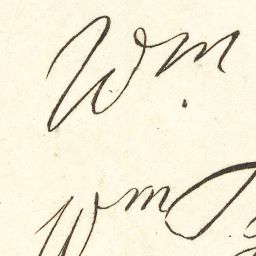 Wm.
Wm